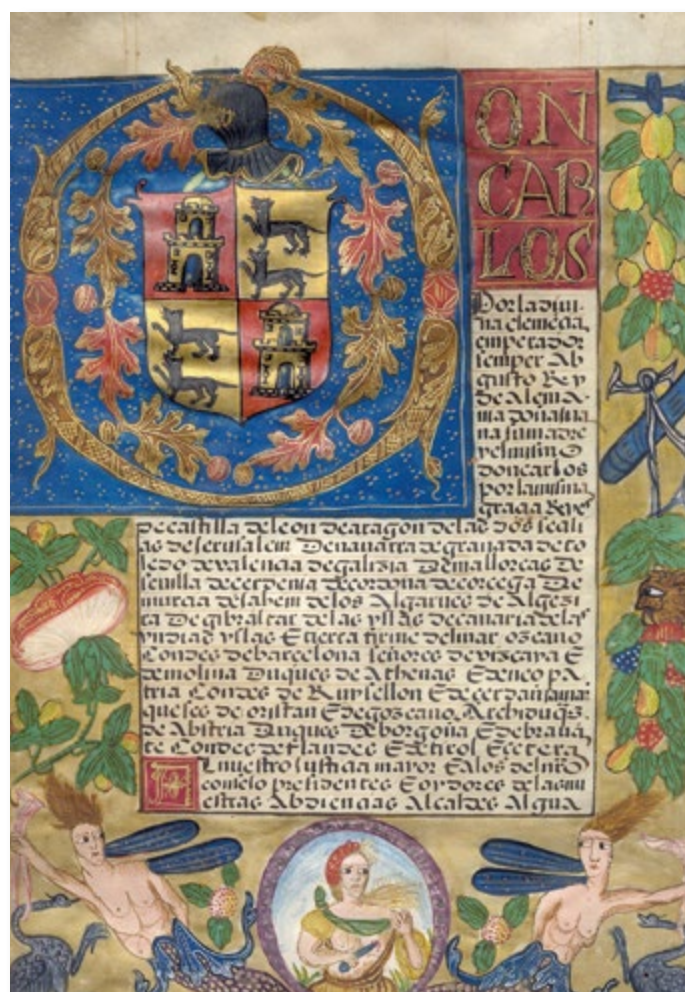 ON
CAR
LOS
Por la divi-
na clemēçia
emperador
semper Ab
gusto Rey
de Alema-
nia doña Jua
na su madre
y el mismo
don carlos
por la misma
graçia Reyes
de castilla de leon de aragon de las dos seçili
as de jerusalem de navarra de granada de to
ledo de valençia de galizia de mallorcas de
sevilla de çerdeña de cordova de corçega de
murçia de jahem de los Algarves de Algezi
ra de gibraltar de las yslas de canaria de las
yndias yslas E tierra firme del mar oçeano
Condes de barcelona señores de vizcaya E
de molina Duques de Athenas E de neo pa
tria Condes de Ruysellon E de çerdania mar
queses de oristan E de goçeano Archiduqs.
de Abstria Duques de borgoña E de braua
te Condes de flandes E de tirol Ecetera
Al nuestro justiçia mayor E a los del nro
consejo presidentes E oydores de las nu
estras Abdiençias Alcaldes Algua